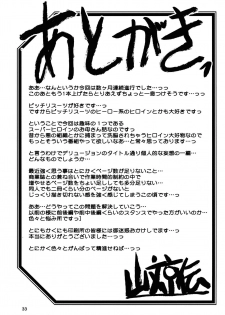 あとがき。
ああ…なんというか今回は数ヶ月連続進行でした…っっ
このあともう1本上げたらとりあえずちょっと一息つけそうです…っっ
ピッチリスーツが好きです…っっ
ですからピッチリスーツのヒーロー系のヒロインとかも大好きです…っっ
ということで今回は趣味の1つである
スーパーヒロインのお母さん話なのです…っっ
昔から悪の組織とかに捕まって洗脳されちゃうヒロイン大好物なので
もっとそういう番組やって欲しいなあ…と常々思っております…っっ
と言うわけでデリュージョンのタイトル通り個人的な妄想の一編…
どんなものでしょうか…
最近強く思う事はとにかくページ数が足りないこと…
商業誌との兼ね合いで作業時間的制約の中で
増やせるページ数もおいしにしても多分足りない…
同人でも二冊くらい分のページがないと
じっくり描き切れない感を強く感じてしまうこの頃です…
ああ…どうやってこの問題を解決していこう…
以前の様に前後編や前中後編くらいのスタンスでやった方がいいのか…
色々と悩み所です…っっ
とにかく今にも印刷所の皆様には御迷惑おかけして
本当にありがとうございました…っっ
とにかく色々とがんばって精進せねば…っっ
33